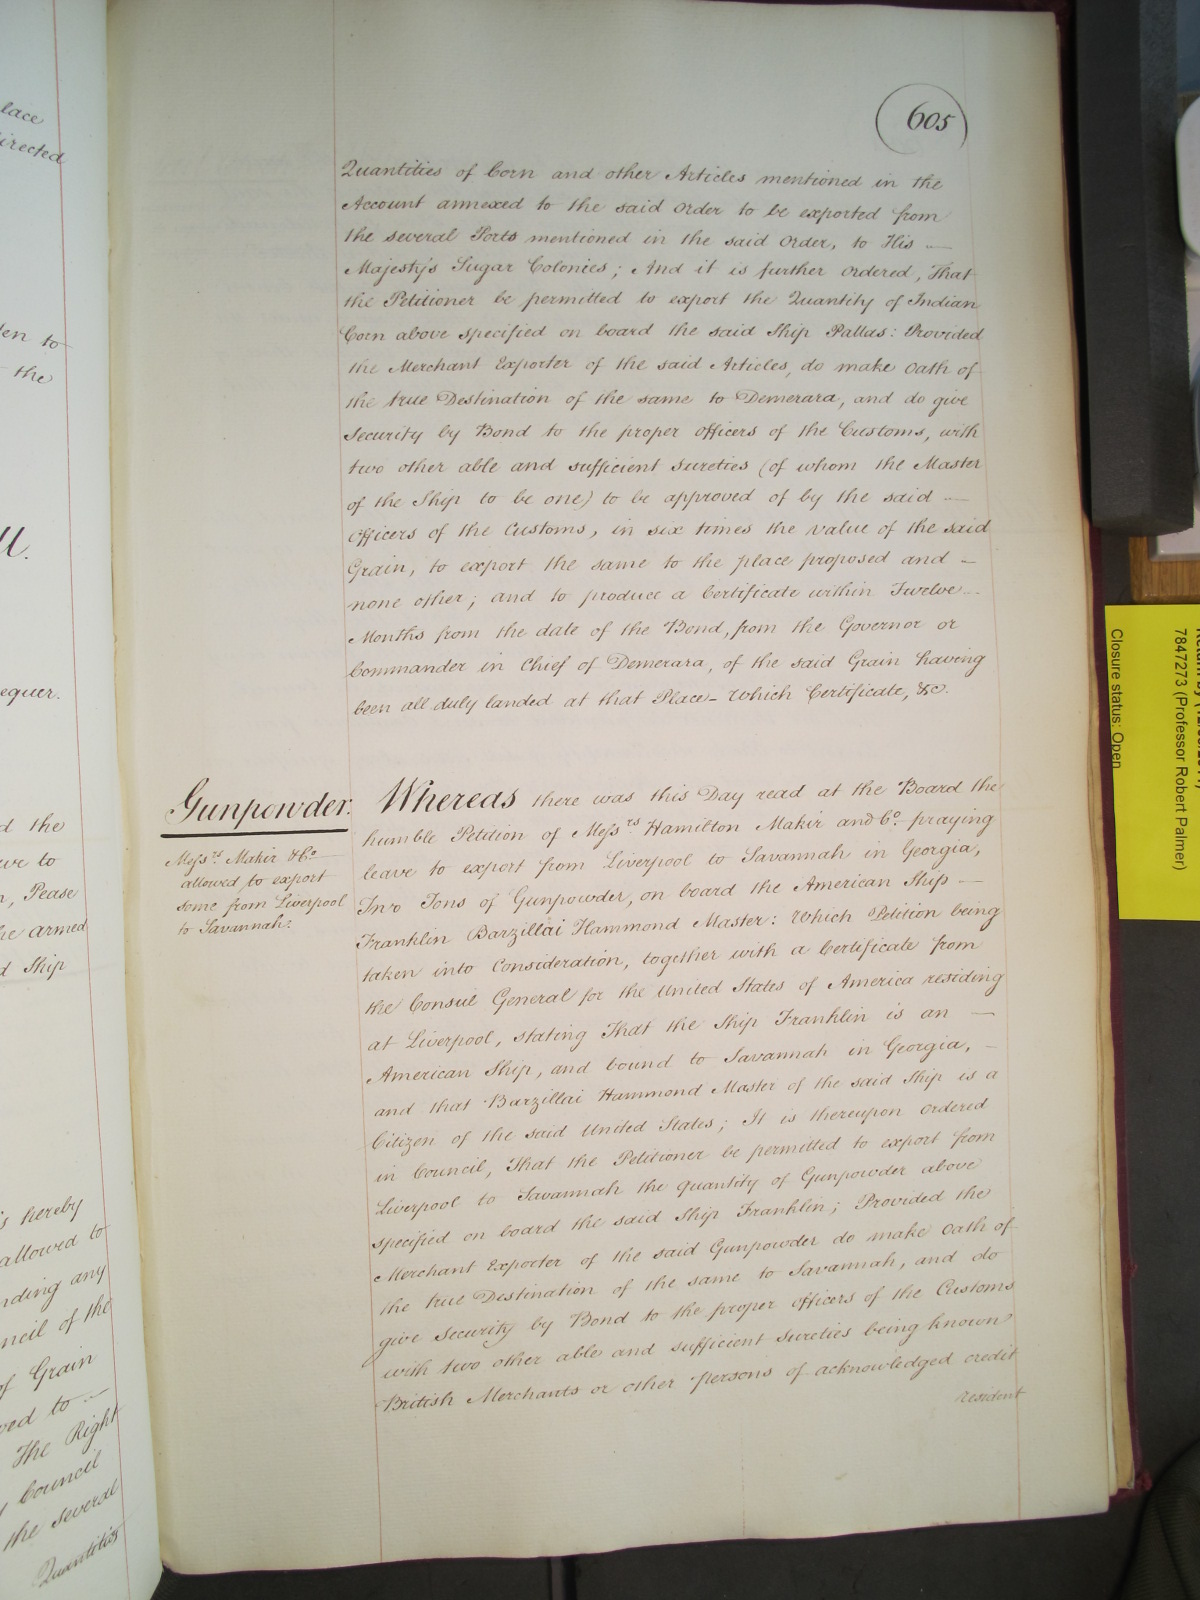 lace
irected
ten to
the
ll.
equer.
d the
ave to
n, Pease
he armed
d Ship
is hereby
allowed to
nding any
ncil of the
of Grain
ved to
The Right
y Council
the several
Quantities
605
Quantities of Corn and other Articles mentioned in the
Account annexed to the said Order to be exported from
the several Ports mentioned in the said Order, to His —
Majesty's Sugar Colonies; And it is further ordered, That
the Petitioner be permitted to export the Quantity of Indian
Corn above specified on board the said Ship Pallas: Provided
the Merchant Exporter of the said Articles, do make Oath of
the true Destination of the same to Demerara, and do give
Security by Bond to the proper Officers of the Customs, with
two other able and sufficient Sureties (of whom the Master
of the Ship to be one) to be approved of by the said —
Officers of the Customs, in six times the value of the said
Grain, to export the same to the place proposed and —
none other; and to produce a Certificate within Twelve —
Months from the date of the Bond, from the Governor or
Commander in Chief of Demerara, of the said Grain having
been all duly landed at that Place — Which Certificate, &c.
Gunpowder.
Messrs. Makir & Co.
allowed to export
some from Liverpool
to Savannah.
Whereas there was this Day read at the Board the
humble Petition of Messrs Hamilton Makir and Co. praying
leave to export from Liverpool to Savannah in Georgia,
Two Tons of Gunpowder, on board the American Ship —
Franklin Barzillai Hammond Master: Which Petition being
taken into Consideration, together with a Certificate from
the Consul General for the United States of America residing
at Liverpool, stating That the Ship Franklin is an —
American Ship, and bound to Savannah in Georgia, —
and that Barzillai Hammond Master of the said Ship is a
Citizen of the said United States; It is thereupon ordered
in Council, That the Petitioner be permitted to export from
Liverpool to Savannah the quantity of Gunpowder above
specified on board the said Ship Franklin; Provided the
Merchant Exporter of the said Gunpowder do make Oath of
the true Destination of the same to Savannah, and do
give Security by Bond to the proper Officers of the Customs
with two other able and sufficient Sureties being known
British Merchants or other persons of acknowledged credit
resident
7847273 (Professor Robert Palmer)
Closure status: Open